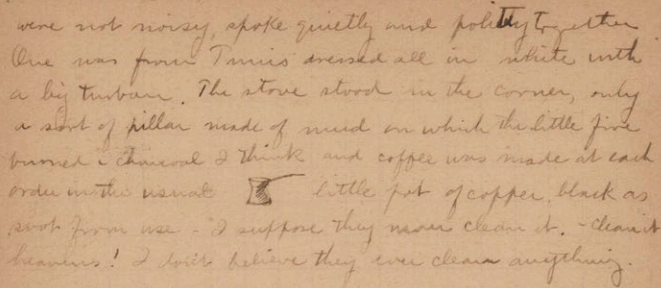 were not noisy, spoke quietly and politely together
One was from Tunis dressed all in white with
a big turban. The stove stood in the corner, only
a sort of pillar made of mud on which the little fire
burned - charcoal I think and coffee was made at each
order in the usual little pot of copper, black as
soot from use - I suppose they never clean it. - Clean it
heavens! I don't believe they ever clean anything.